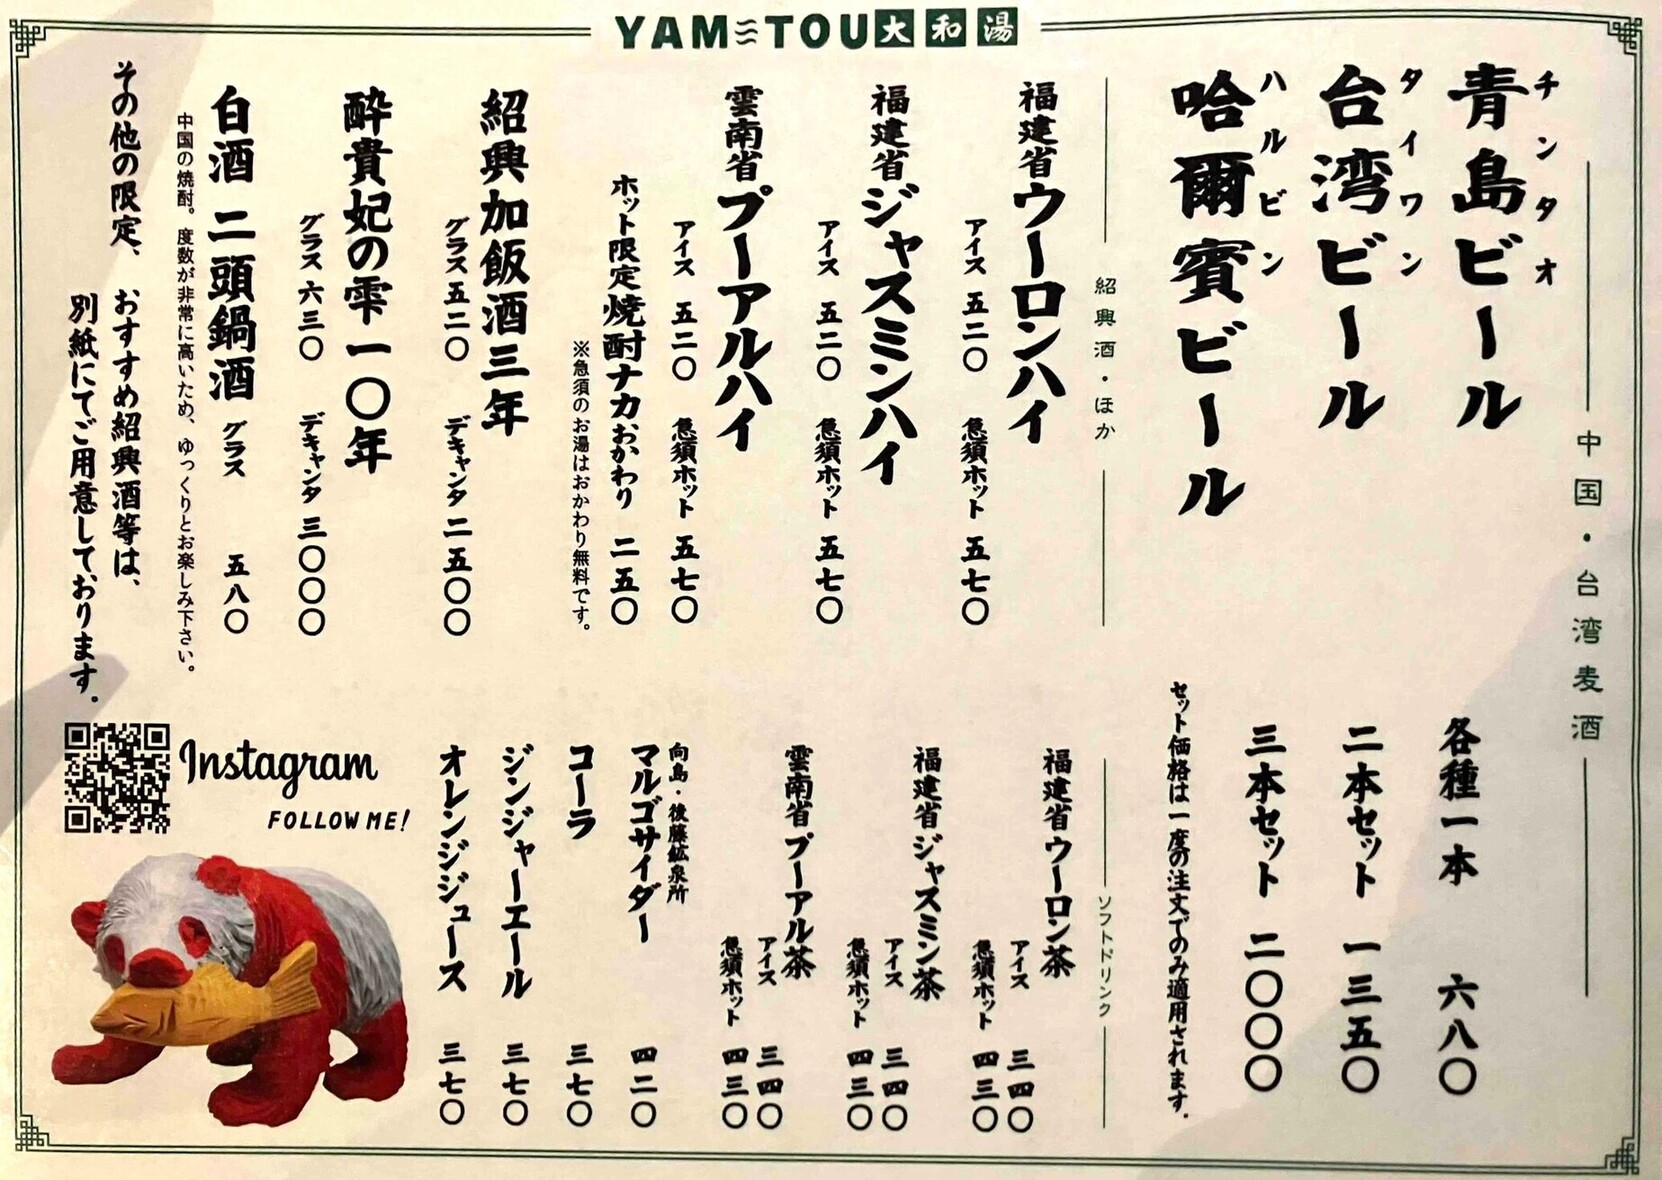 YAM TOU 大和湯
中国・台湾麦酒
チンタオ
青島ビール
タイワン
台湾ビール
ハルビン
哈爾賓ビール
各種一本 六八〇
二本セット 一三五〇
三本セット 二〇〇〇
セット価格は一度の注文でのみ適用されます。
紹興酒・ほか
福建省ウーロンハイ
アイス 五二〇 急須ホット 五七〇
福建省ジャスミンハイ
アイス 五二〇 急須ホット 五七〇
雲南省プーアルハイ
アイス 五二〇 急須ホット 五七〇
ホット限定焼酎ナカおかわり 二五〇
※急須のお湯はおかわり無料です。
紹興加飯酒三年
グラス 五二〇 デキャンタ 二五〇〇
酔貴妃の雫 一〇年
グラス 六三〇 デキャンタ 三〇〇〇
白酒 二頭鍋酒 グラス 五八〇
中国の焼酎。度数が非常に高いため、ゆっくりとお楽しみ下さい。
その他の限定、おすすめ紹興酒等は、
別紙にてご用意しております。
ソフトドリンク
福建省ウーロン茶
アイス 三四〇
急須ホット 四三〇
福建省ジャスミン茶
アイス 三四〇
急須ホット 四三〇
雲南省プーアル茶
アイス 三四〇
急須ホット 四三〇
向島・後藤鉱泉所
マルゴサイダー 四二〇
コーラ 三七〇
ジンジャーエール 三七〇
オレンジジュース 三七〇
Instagram
FOLLOW ME!